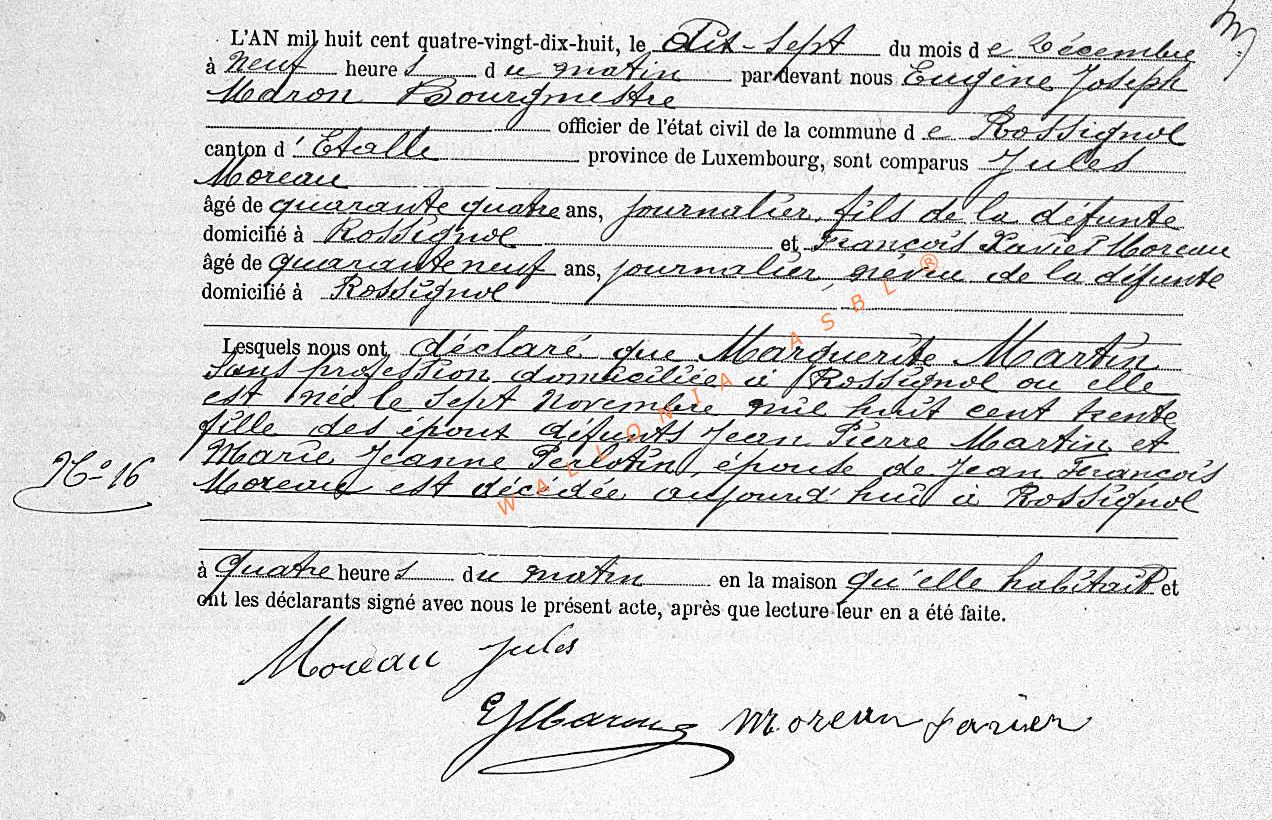 L'AN mil huit cent quatre-vingt-dix-huit, le Dix-Sept du mois d e Décembre
à Neuf heure s d u matin par devant nous Eugène Joseph
Maron Bourgmestre
officier de l'état civil de la commune d e Rossignol
canton d' Etalle province de Luxembourg, sont comparus Jules
Moreau
âgé de quarante quatre ans, journalier, fils de la défunte
domicilié à Rossignol et François Xavier Moreau
âgé de quarante neuf ans, journalier, néveu de la défunte
domicilié à Rossignol
Lesquels nous ont déclaré que Marguerite Martin
sans profession domiciliée à Rossignol ou elle
est née le sept Novembre mil huit cent trente
fille des époux défunts Jean Pierre Martin et
Marie Jeanne Perlotin, épouse de Jean François
N° 16
Moreau est décédée aujourd'hui à Rossignol
à quatre heure s d u matin en la maison qu'elle habitait et
ont les déclarants signé avec nous le présent acte, après que lecture leur en a été faite.
Moreau Jules
EJMaron Moreau Xavier
WALLONIA ASBL ®